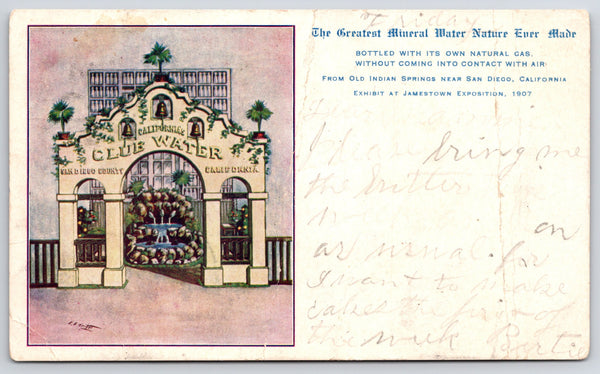 CALIFORNIA
CLUB WATER
SAN DIEGO COUNTY CALIFORNIA
Friday
The Greatest Mineral Water Nature Ever Made
BOTTLED WITH ITS OWN NATURAL GAS.
WITHOUT COMING INTO CONTACT WITH AIR
FROM OLD INDIAN SPRINGS NEAR SAN DIEGO, CALIFORNIA
EXHIBIT AT JAMESTOWN EXPOSITION, 1907
bring me
the butter
on
as usual. for
I want to make
cakes the first of
the week